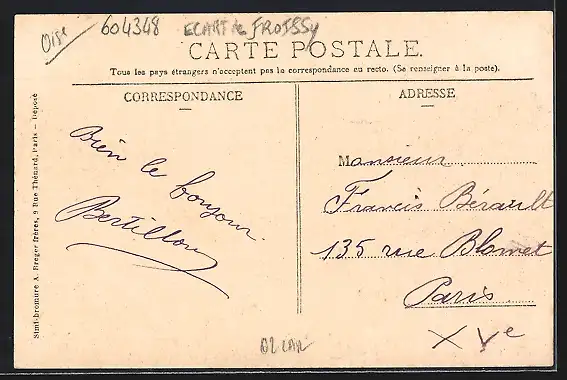 Oise 604348 ECART de FROISSY
CARTE POSTALE.
Tous les pays étrangers n'acceptent pas la correspondance au recto. (Se renseigner à la poste).
CORRESPONDANCE
Bien le bonjour.
Bertillon
ADRESSE
Monsieur
Francis Bérault
135 rue Blomet
Paris
XVe
Simili-bromure A. Breger frères, 9 Rue Thénard, Paris — Déposé